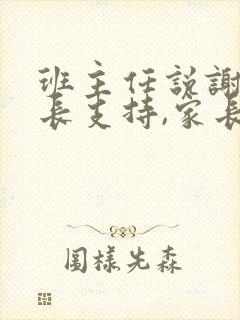 班主任説謝
長支持,家長
圖樣先森